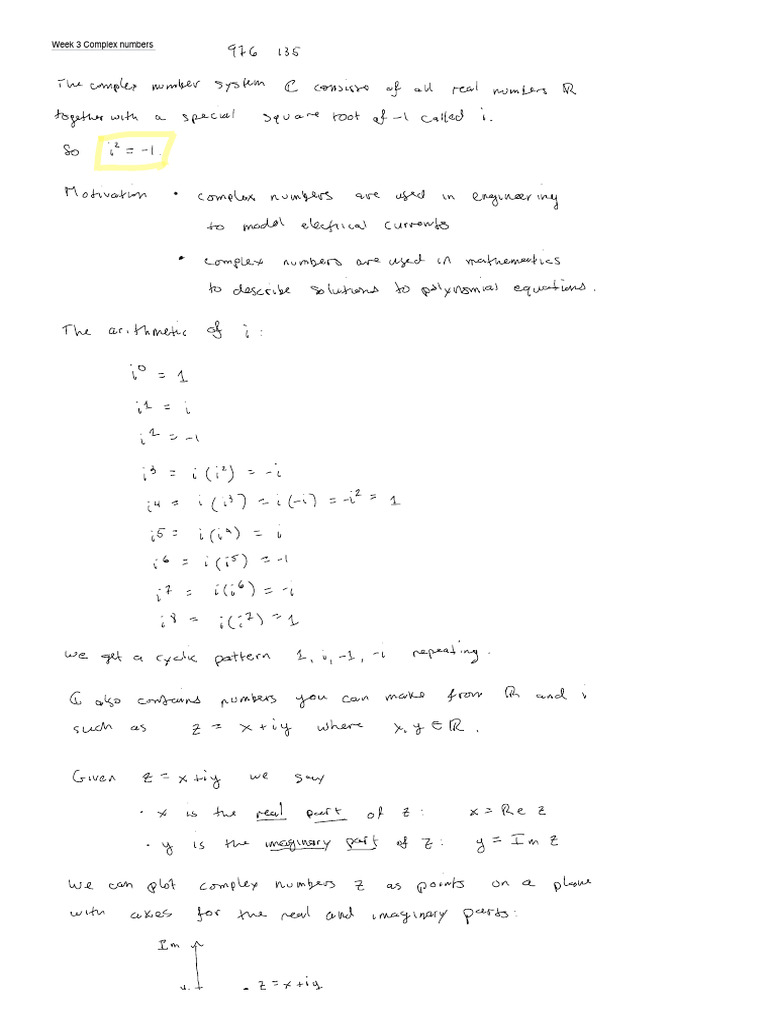 Week 3 Complex numbers
976 135
The complex number system ℂ consists of all real numbers ℝ
together with a special square root of -1 called i.
So i² = -1.
Motivation • complex numbers are used in engineering
to model electrical currents
• complex numbers are used in mathematics
to describe solutions to polynomial equations.
The arithmetic of i:
i⁰ = 1
i¹ = i
i² = -1
i³ = i(i²) = -i
i⁴ = i(i³) = i(-i) = -i² = 1
i⁵ = i(i⁴) = i
i⁶ = i(i⁵) = -1
i⁷ = i(i⁶) = -i
i⁸ = i(i⁷) = 1
We get a cyclic pattern 1, i, -1, -i repeating.
ℂ also contains numbers you can make from ℝ and i
such as z = x + iy where x, y ∈ ℝ.
Given z = x + iy we say
• x is the real part of z: x = Re z
• y is the imaginary part of z: y = Im z
We can plot complex numbers z as points on a plane
with axes for the real and imaginary parts:
Im
y
• z = x + iy